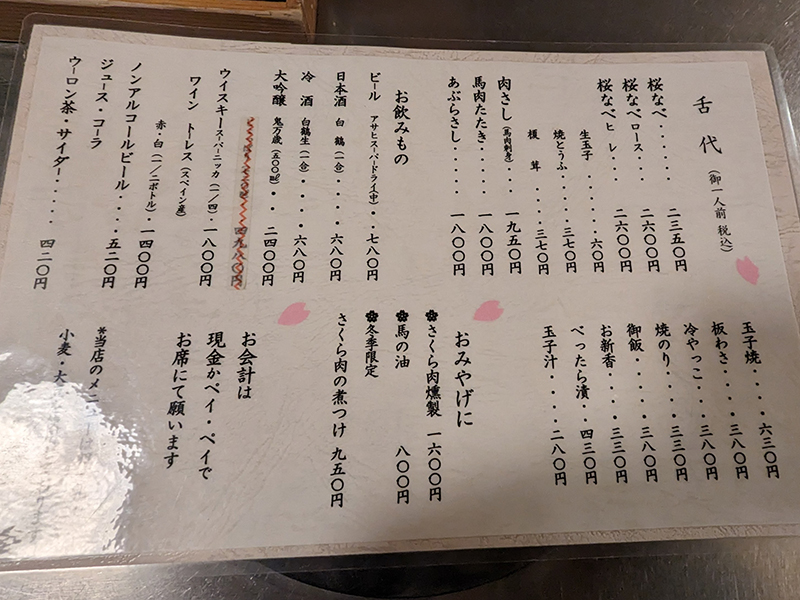 舌代 (御一人前 税込)
桜なべ・・・・・・二三五〇円
桜なべロース・・・二六〇〇円
桜なべヒレ・・・二六〇〇円
生玉子・・・・・・六〇円
焼とうふ・・・・三七〇円
榎茸・・・・・三七〇円
肉さし(馬肉刺身)・・・一九五〇円
馬肉たたき・・・・一八〇〇円
あぶらさし・・・・一八〇〇円
お飲みもの
ビール アサヒスーパードライ(中)・・七八〇円
日本酒 白鶴(一合)・・・・六八〇円
冷酒 白鶴生(一合)・・・・六八〇円
大吟醸 鬼万歳(五〇〇㎖)・・二四〇〇円
四九八〇円
ウイスキー スーパーニッカ(一/四)・一八〇〇円
ワイン トーレス(スペイン産)
赤・白(一/二ボトル)・一四〇〇円
ノンアルコールビール・・・・五二〇円
ジュース・コーラ
ウーロン茶・サイダー・・・・・四二〇円
玉子焼・・・・六三〇円
板わさ・・・・三八〇円
冷やっこ・・・三八〇円
焼のり・・・・三三〇円
御飯・・・・・三八〇円
お新香・・・・三三〇円
べったら漬・・四三〇円
玉子汁・・・・二八〇円
おみやげに
さくら肉燻製 一六〇〇円
馬の油 八〇〇円
冬季限定
さくら肉の煮つけ 九五〇円
お会計は
現金かペイ・ペイで
お席にて願います
*当店のメニュー
小麦・大